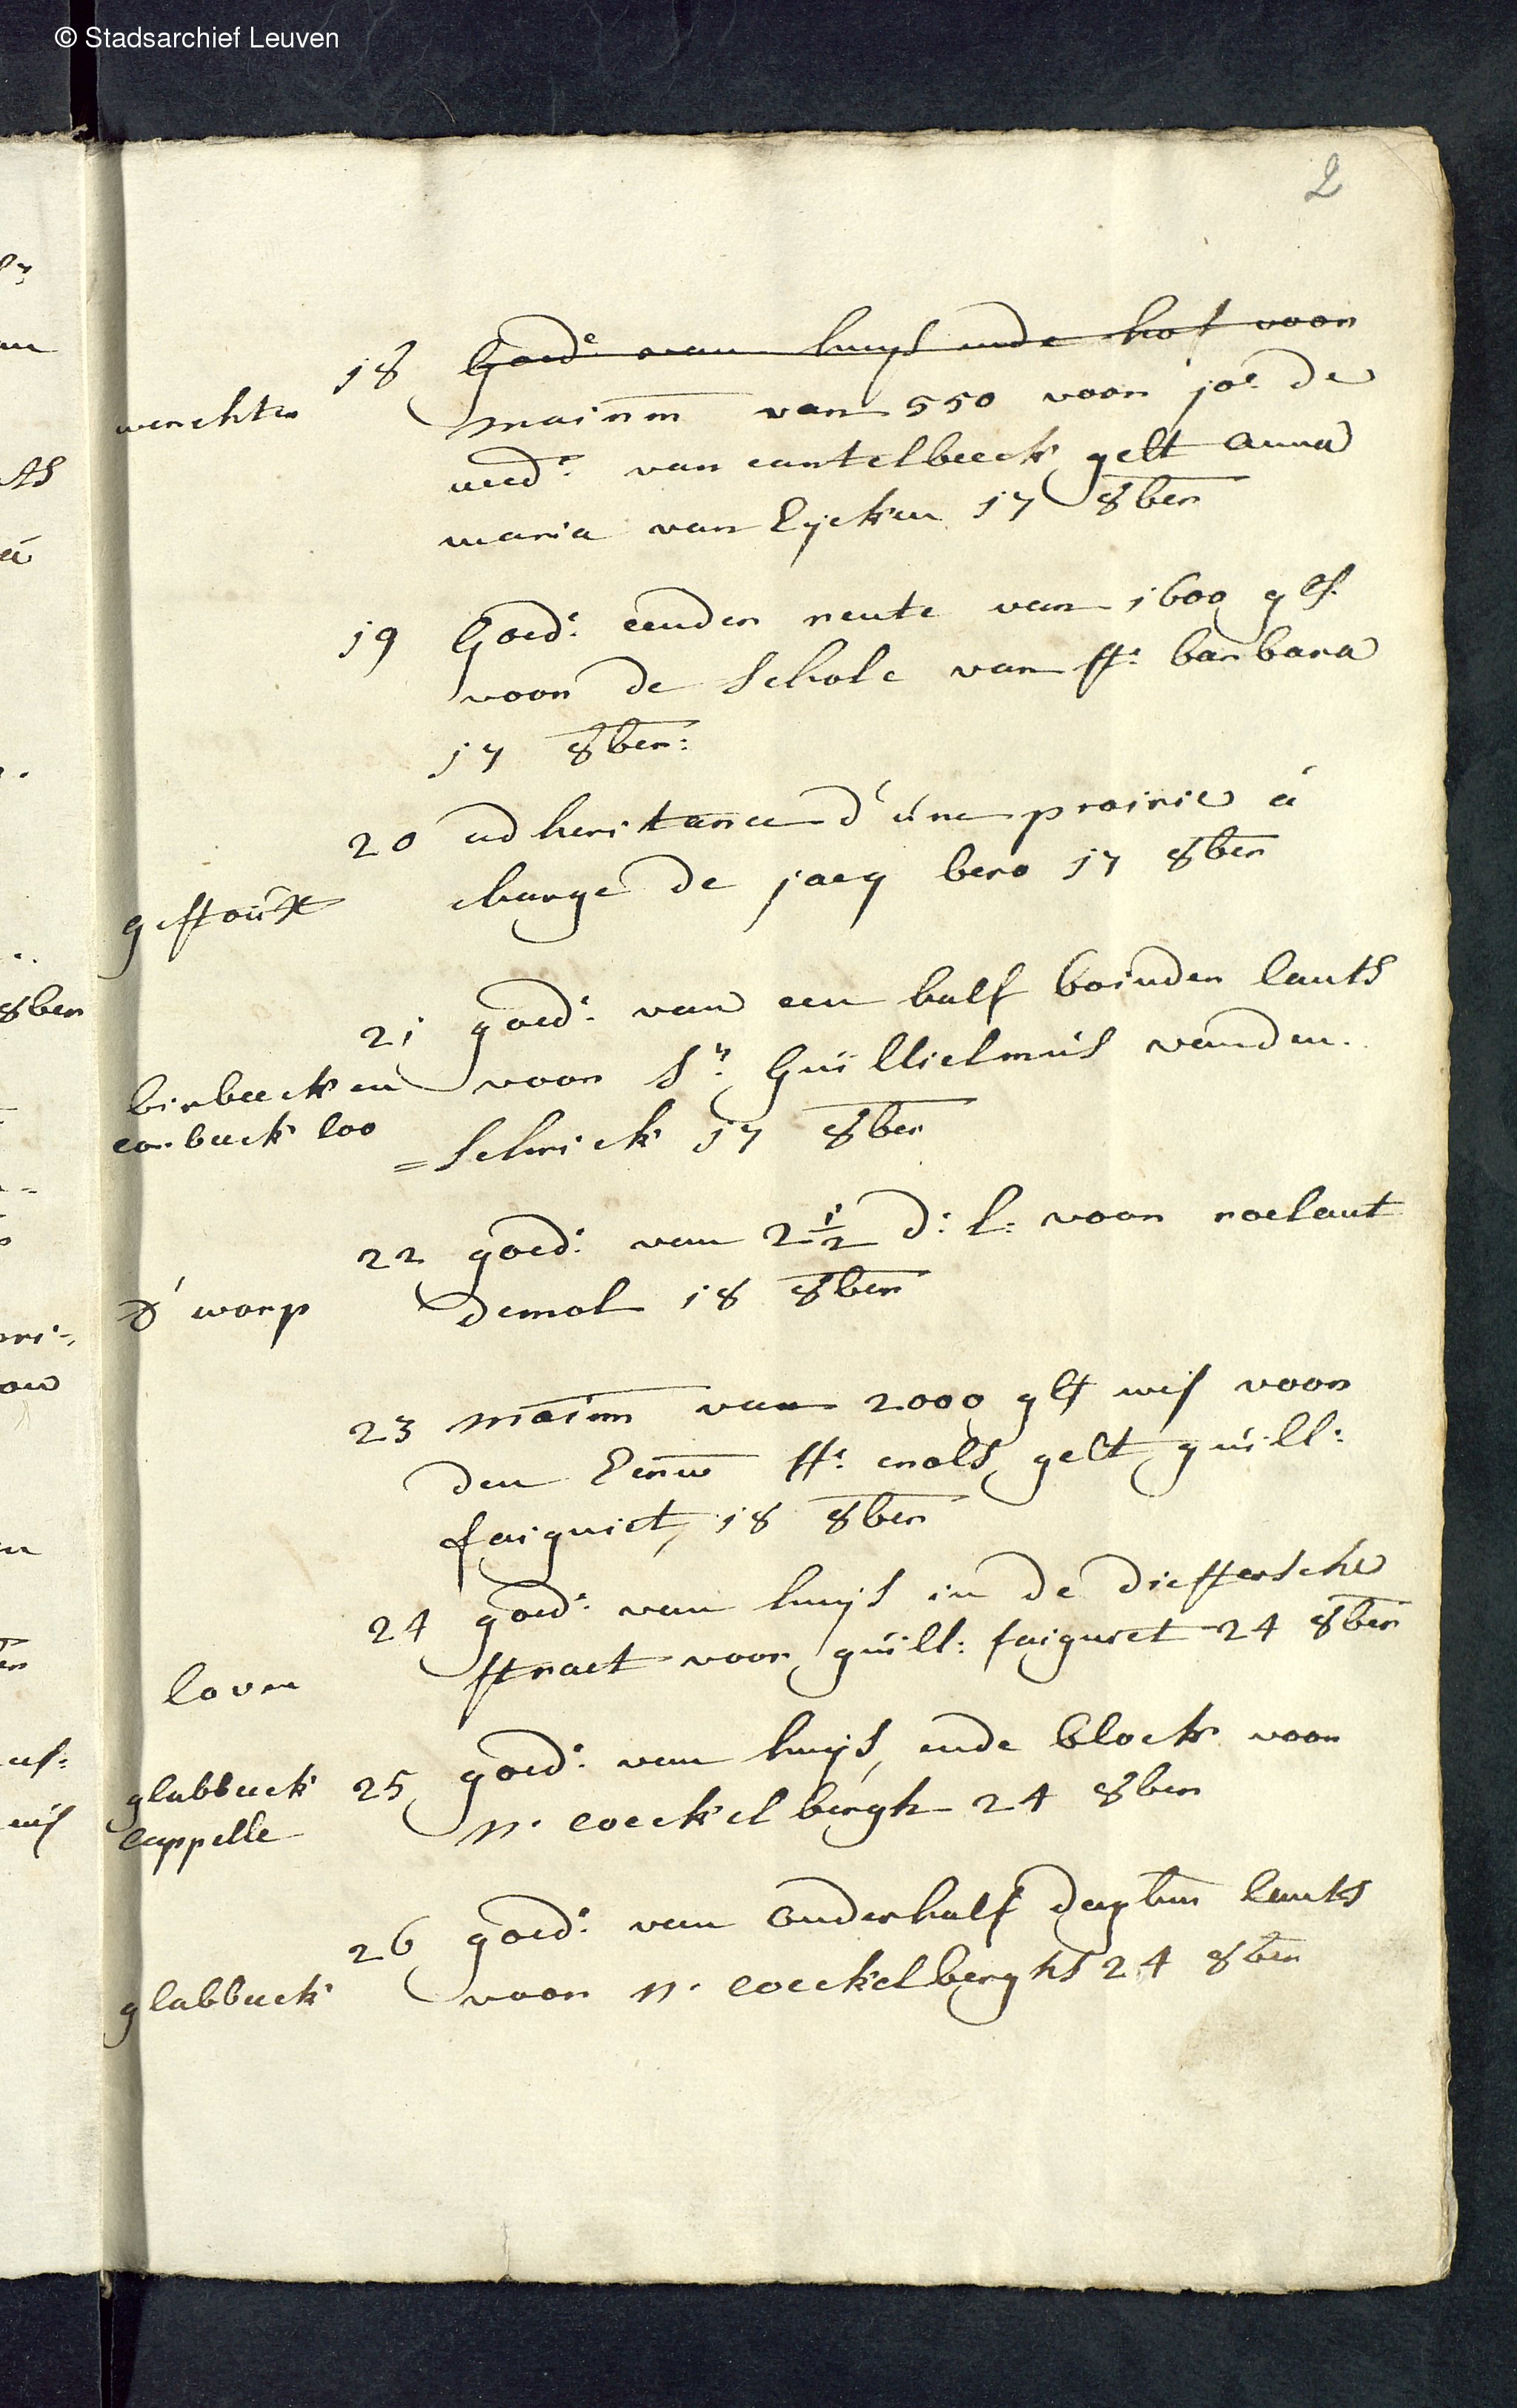 © Stadsarchief Leuven
2
18 Goed: van huijs ende hof voor
werchter
mainm van 550 voor jo: de
wed: van cantelbeeck gelt anna
maria van Eijcken 17 8ber
19 Goed: eender rente van 1600 gls.
voor de schole van st: barbara
17 8ber:
20 adheritance d'une prairie á
gestoux
charge de jacq bero 17 8ber
21 goed: van een half boinder lants
birbeeck en
voor Sr: Guillielmus vanden
corbeeck loo
=schrick 17 8ber
22 goed: van 2 1/2 d: l: voor roelant
d'worp
demol 18 8ber
23 mainm van 2000 gls wis voor
den Eerw st: crols gelt guill:
faignict, 18 8ber
24 goed: van huijs in de diestersche
straet voor guill: faignict 24 8ber
loven
25 goed: van huijs, ende block voor
glabbeeck
cappelle
N. coeckelbergh 24 8ber
26 goed: van onderhalf daghm lants
glabbeeck
voor N. coeckelberghs 24 8ber
8ber